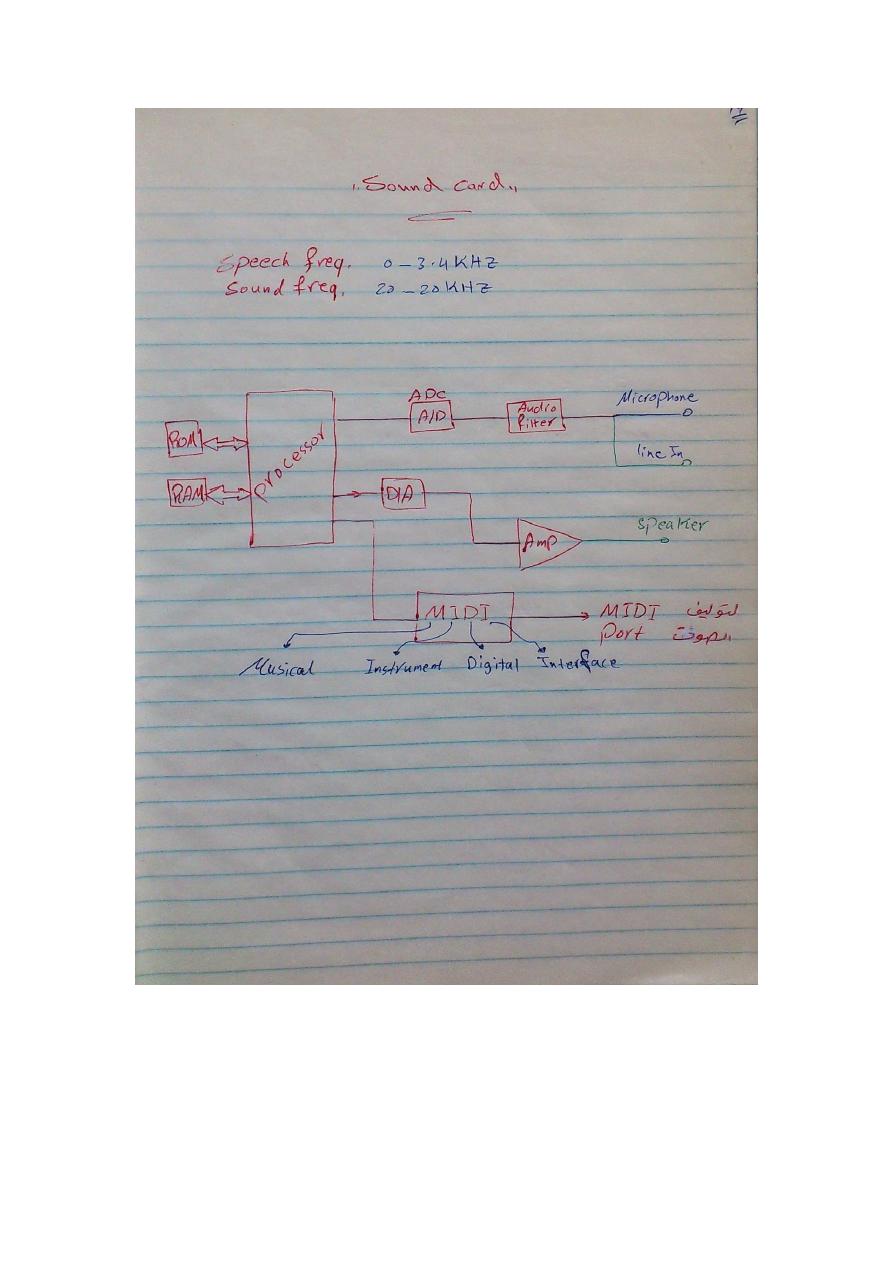 "Sound card"
Speech freq. 0 - 3.4 KHZ
Sound freq. 20 - 20 KHZ
ADC
A/D
Audio
filter
Microphone
line In
ROM
RAM
processor
D/A
Amp
Speaker
MIDI
MIDI لتوليف
Port الصوت
Musical Instrument Digital Interface